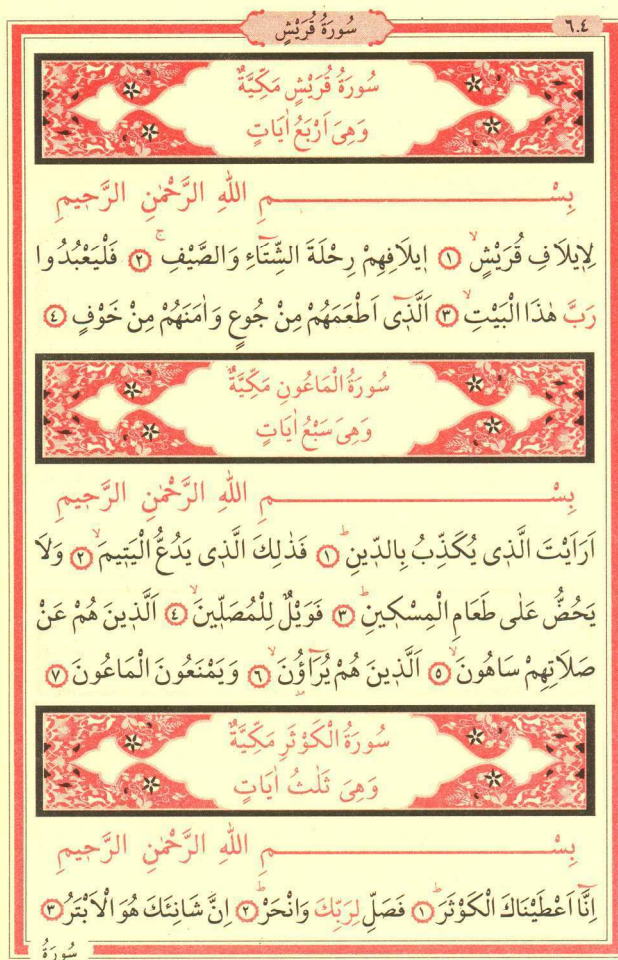 سُورَةُ قُرَيْشٍ
٦٠٤
سُورَةُ قُرَيْشٍ مَكِّيَّةٌ
وَهِىَ اَرْبَعُ اٰيَاتٍ
بِسْــــــــمِ اللهِ الرَّحْمٰنِ الرَّحِيمِ
لِاِيلَافِ قُرَيْشٍۙ ﴿١﴾ اٖيلَافِهِمْ رِحْلَةَ الشِّتَٓاءِ وَالصَّيْفِۚ ﴿٢﴾ فَلْيَعْبُدُوا
رَبَّ هٰذَا الْبَيْتِۙ ﴿٣﴾ اَلَّذٖٓى اَطْعَمَهُمْ مِنْ جُوعٍ وَاٰمَنَهُمْ مِنْ خَوْفٍ ﴿٤﴾
سُورَةُ الْمَاعُونِ مَكِّيَّةٌ
وَهِىَ سَبْعُ اٰيَاتٍ
بِسْــــــــمِ اللهِ الرَّحْمٰنِ الرَّحِيمِ
اَرَاَيْتَ الَّذٖى يُكَذِّبُ بِالدّٖينِۜ ﴿١﴾ فَذٰلِكَ الَّذٖى يَدُعُّ الْيَتٖيمَۙ ﴿٢﴾ وَلَا
يَحُضُّ عَلٰى طَعَامِ الْمِسْكٖينِۜ ﴿٣﴾ فَوَيْلٌ لِلْمُصَلّٖينَۙ ﴿٤﴾ اَلَّذٖينَ هُمْ عَنْ
صَلَاتِهِمْ سَاهُونَۙ ﴿٥﴾ اَلَّذٖينَ هُمْ يُرَٓاؤُ۫نَۙ ﴿٦﴾ وَيَمْنَعُونَ الْمَاعُونَ ﴿٧﴾
سُورَةُ الْكَوْثَرِ مَكِّيَّةٌ
وَهِىَ ثَلٰثُ اٰيَاتٍ
بِسْــــــــمِ اللهِ الرَّحْمٰنِ الرَّحِيمِ
اِنَّٓا اَعْطَيْنَاكَ الْكَوْثَرَۜ ﴿١﴾ فَصَلِّ لِرَبِّكَ وَانْحَرْۜ ﴿٢﴾ اِنَّ شَانِئَكَ هُوَ الْاَبْتَرُ ﴿٣﴾
سُورَةُ